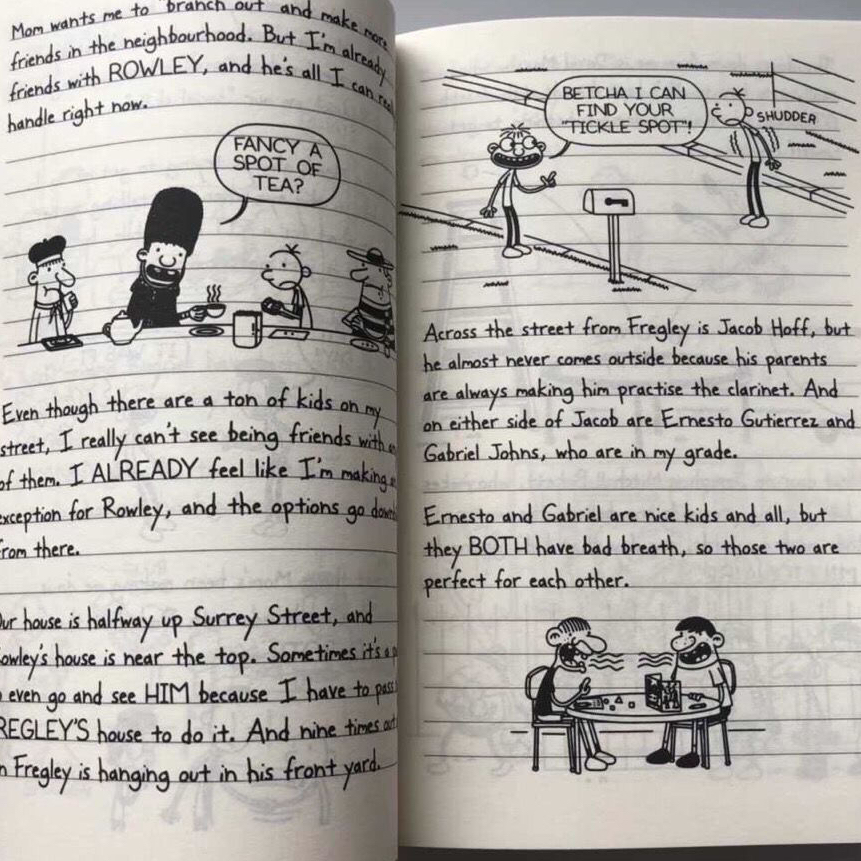 Mom wants me to "branch out" and make more
friends in the neighbourhood. But I'm already
friends with ROWLEY, and he's all I can
handle right now.
FANCY A
SPOT OF
TEA?
Even though there are a ton of kids on my
street, I really can't see being friends with
of them. I ALREADY feel like I'm making
exception for Rowley, and the options go down
from there.
house is halfway up Surrey Street, and
house is near the top. Sometimes it's a
even go and see HIM because I have to pass
house to do it. And nine times out
Fregley is hanging out in his front yard.
BETCHA I CAN
FIND YOUR
"TICKLE SPOT"!
SHUDDER
Across the street from Fregley is Jacob Hoff, but
he almost never comes outside because his parents
are always making him practise the clarinet. And
on either side of Jacob are Ernesto Gutierrez and
Gabriel Johns, who are in my grade.
Ernesto and Gabriel are nice kids and all, but
they BOTH have bad breath, so those two are
perfect for each other.